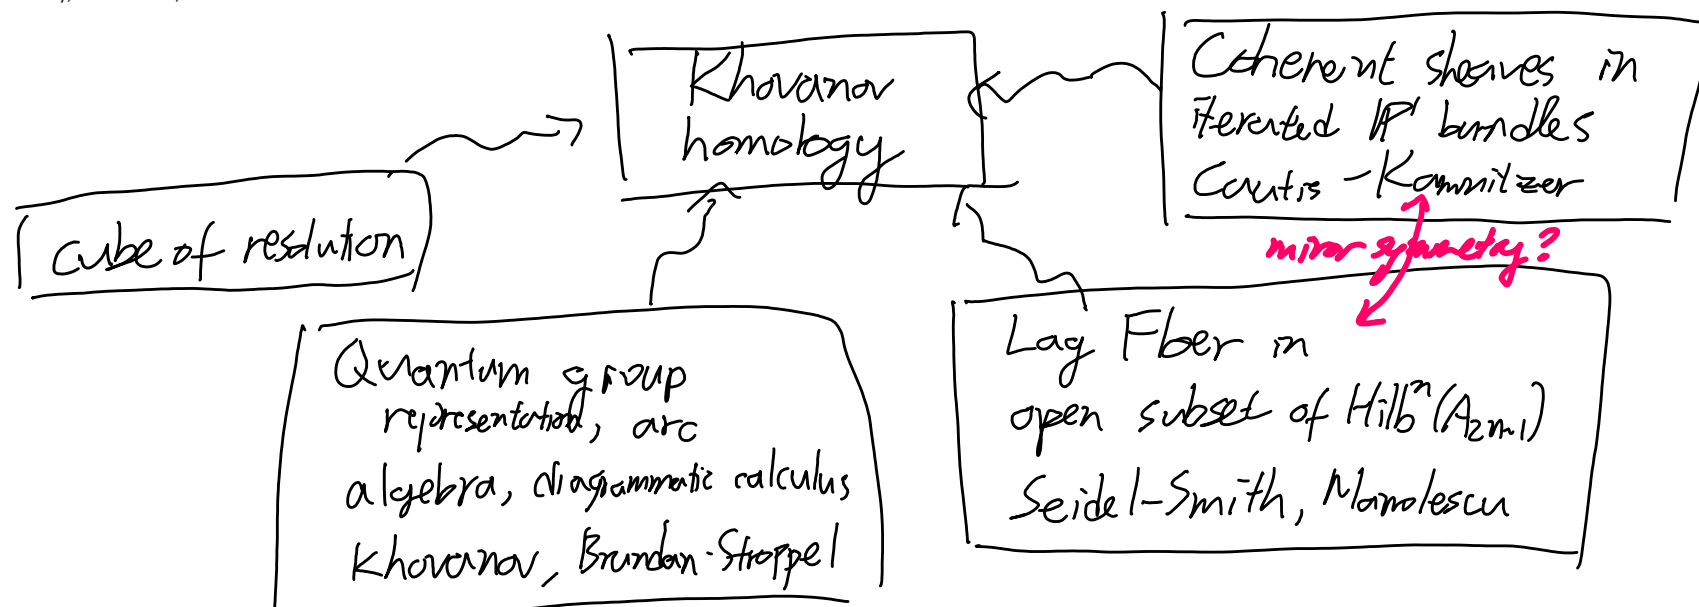 Khovanov
homology
Coherent sheaves in
iterated P' bundles
Cautis - Kamnitzer
mirror symmetry?
cube of resolution
Quantum group
representation, arc
algebra, diagrammatic calculus
Khovanov, Brundan-Stroppel
Lag Fiber in
open subset of Hilbⁿ(A₂ₙ₋₁)
Seidel-Smith, Manolescu